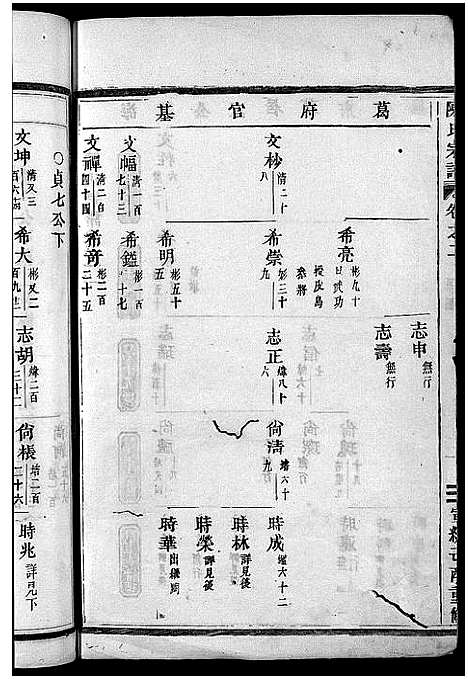 陳氏宗譜
卷之二
葛府官基
志申 無行
志壽 無行
希亮 彬九十
日武功
授皮島
參將
文杪 清二十八
希崇 彬三十九
志正 煒八十六
尙清 培六十九
時成 鑑六十二
時林 詳見後
時榮 詳見後
時華 出繼
希明 彬五十五
文幅 清一百七十三
希鎰 彬一百十七
文禪 清二百四十四
希奇 彬二百二十五
○貞七公下
文坤 清又三百六
希大 彬又二百九
志胡 煒二百二十二
尙棖 培二百二十六
時兆 詳見下